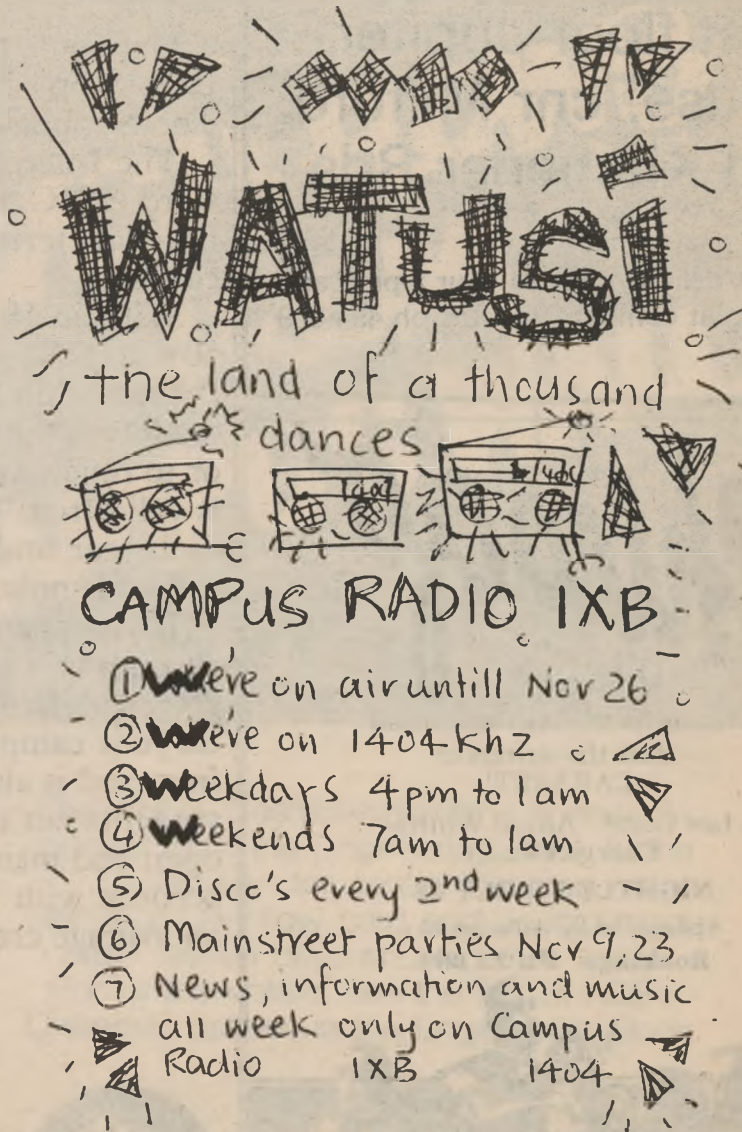 WATUSi
the land of a thousand
dances
1404
1404
CAMPUS RADIO IXB
① We've on air untill Nov 26
② We've on 1404 khz
③ Weekdays 4pm to 1am
④ Weekends 7am to 1am
⑤ Disco's every 2nd week
⑥ Mainstreet parties Nov 9, 23
⑦ News, information and music
all week only on Campus
Radio IXB 1404